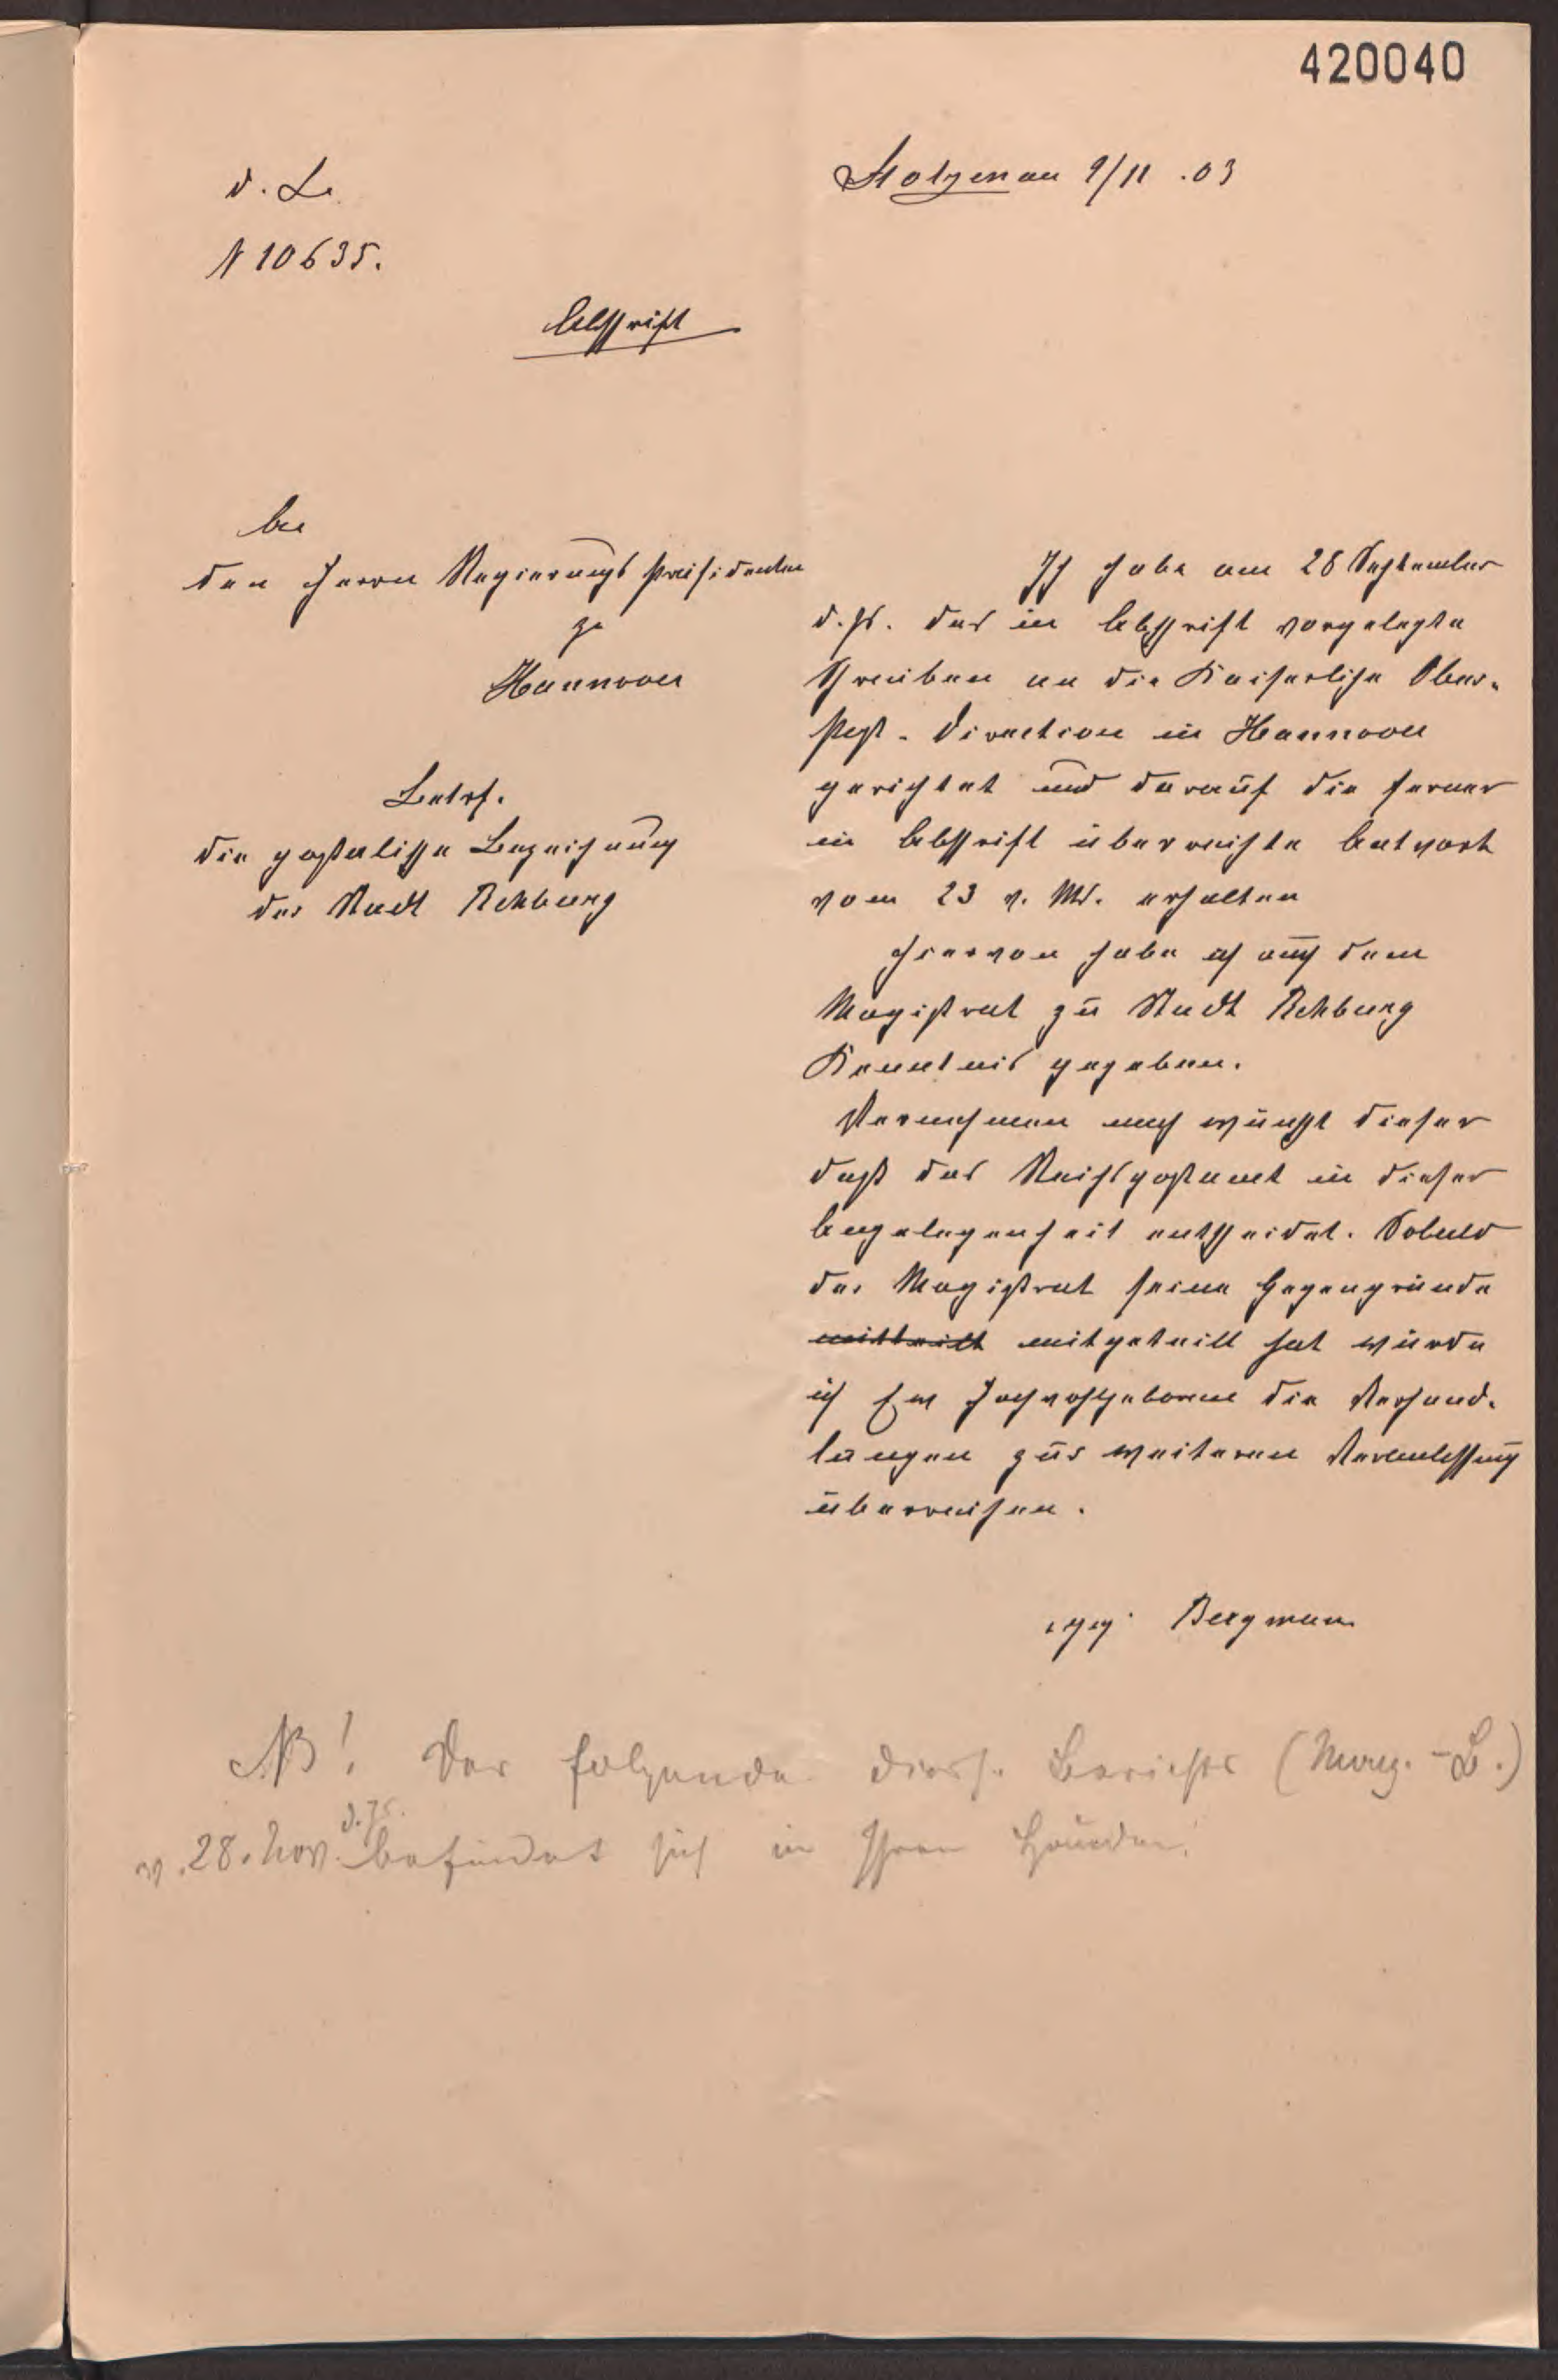 420040
d. L.
N 10635.
Stolzenau 9/11 .03
Abschrift
An
den Herrn Regierungs Präsidenten
zu
Hannover
Betrf.
die postalische Bezeichnung
der Stadt Rehburg
Ich habe am 28 September
d. Js. das in Abschrift vorgelegte
Schreiben an die Kaiserliche Ober-
Post-Direction in Hannover
gerichtet und darauf die ferner
in Abschrift überreichte Antwort
vom 23 v. Mts. erhalten
Hiervon habe ich auch dem
Magistrat zu Stadt Rehburg
Kenntnis gegeben.
Vernehmen nach wünscht dieser
daß das Reichspostamt in dieser
Angelegenheit entscheidet. Sobald
der Magistrat seine Gegengründe
mittheilt mitgeteilt hat würde
ich Ew Hochwohlgeboren die Verhand-
lungen zur weiteren Veranlassung
überreichen.
gez. Bergmann
NB! Der folgende diess. Bericht (Mag. - B.)
v. 28. Nov. d. Js. befindet sich in Ihren Händen!